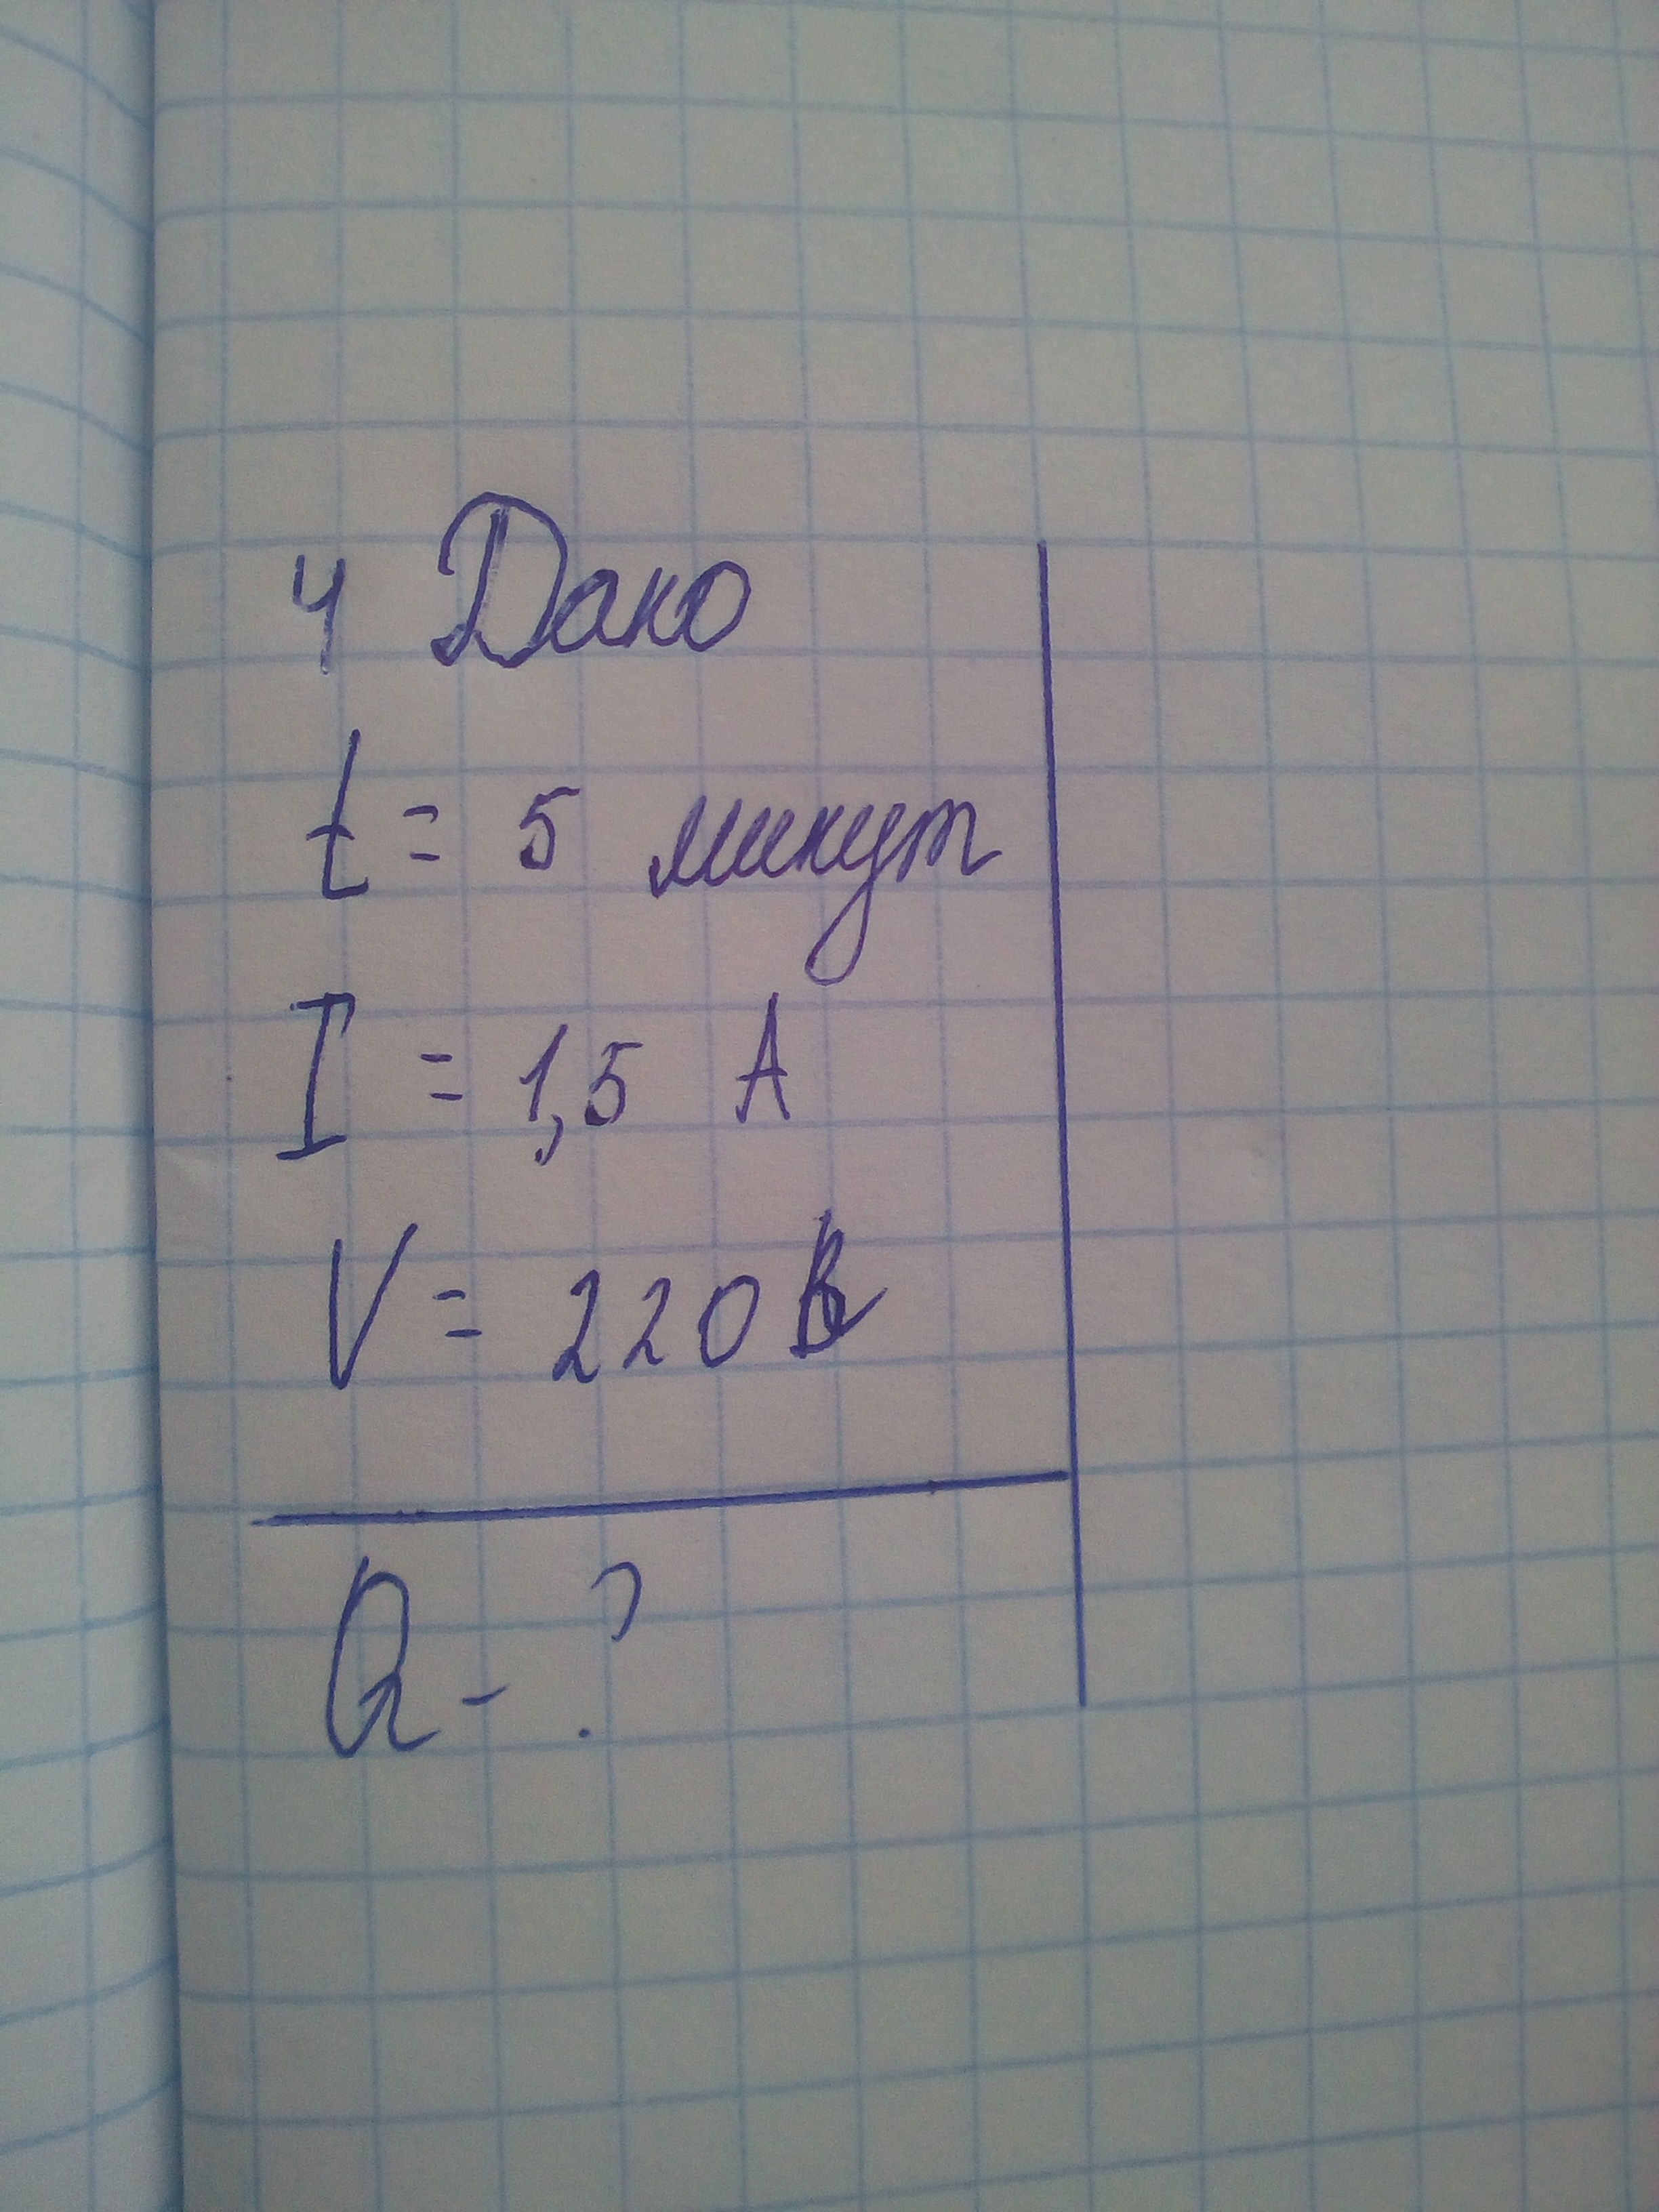 4 Дано
t = 5 минут
I = 1,5 А
V = 220 В
Q - ?